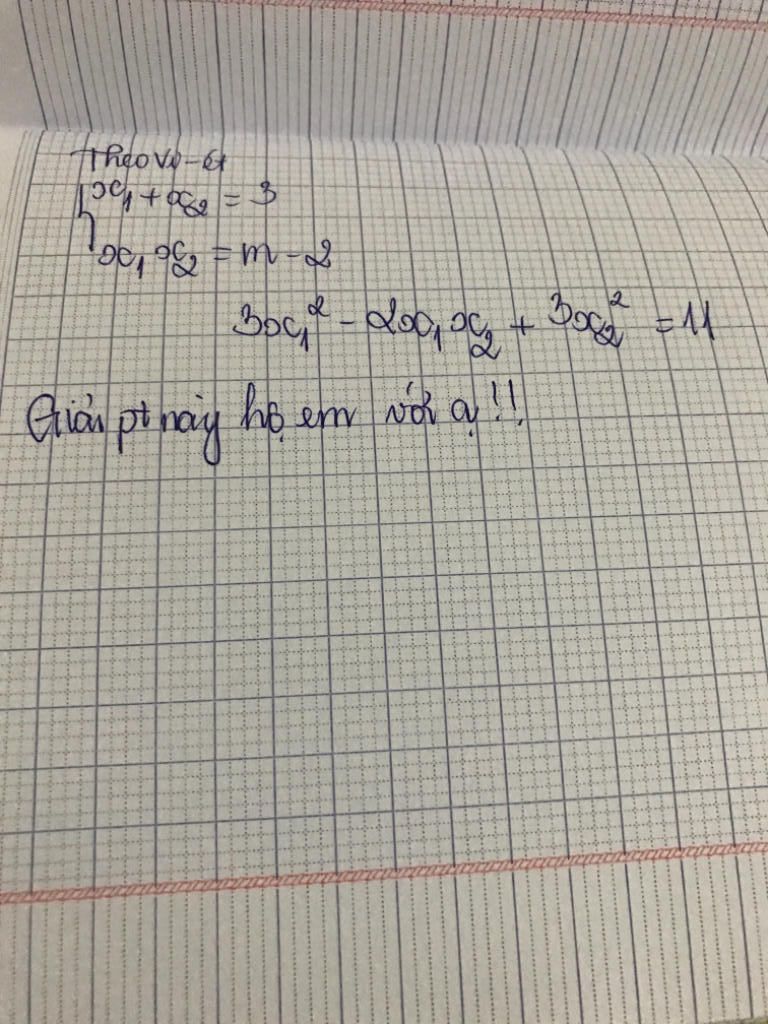 Theo Vi-ét
x₁ + x₂ = 3
x₁ x₂ = m - 2
3x₁² - 2x₁ x₂ + 3x₂² = 11
Giải pt này hộ em với ạ!!